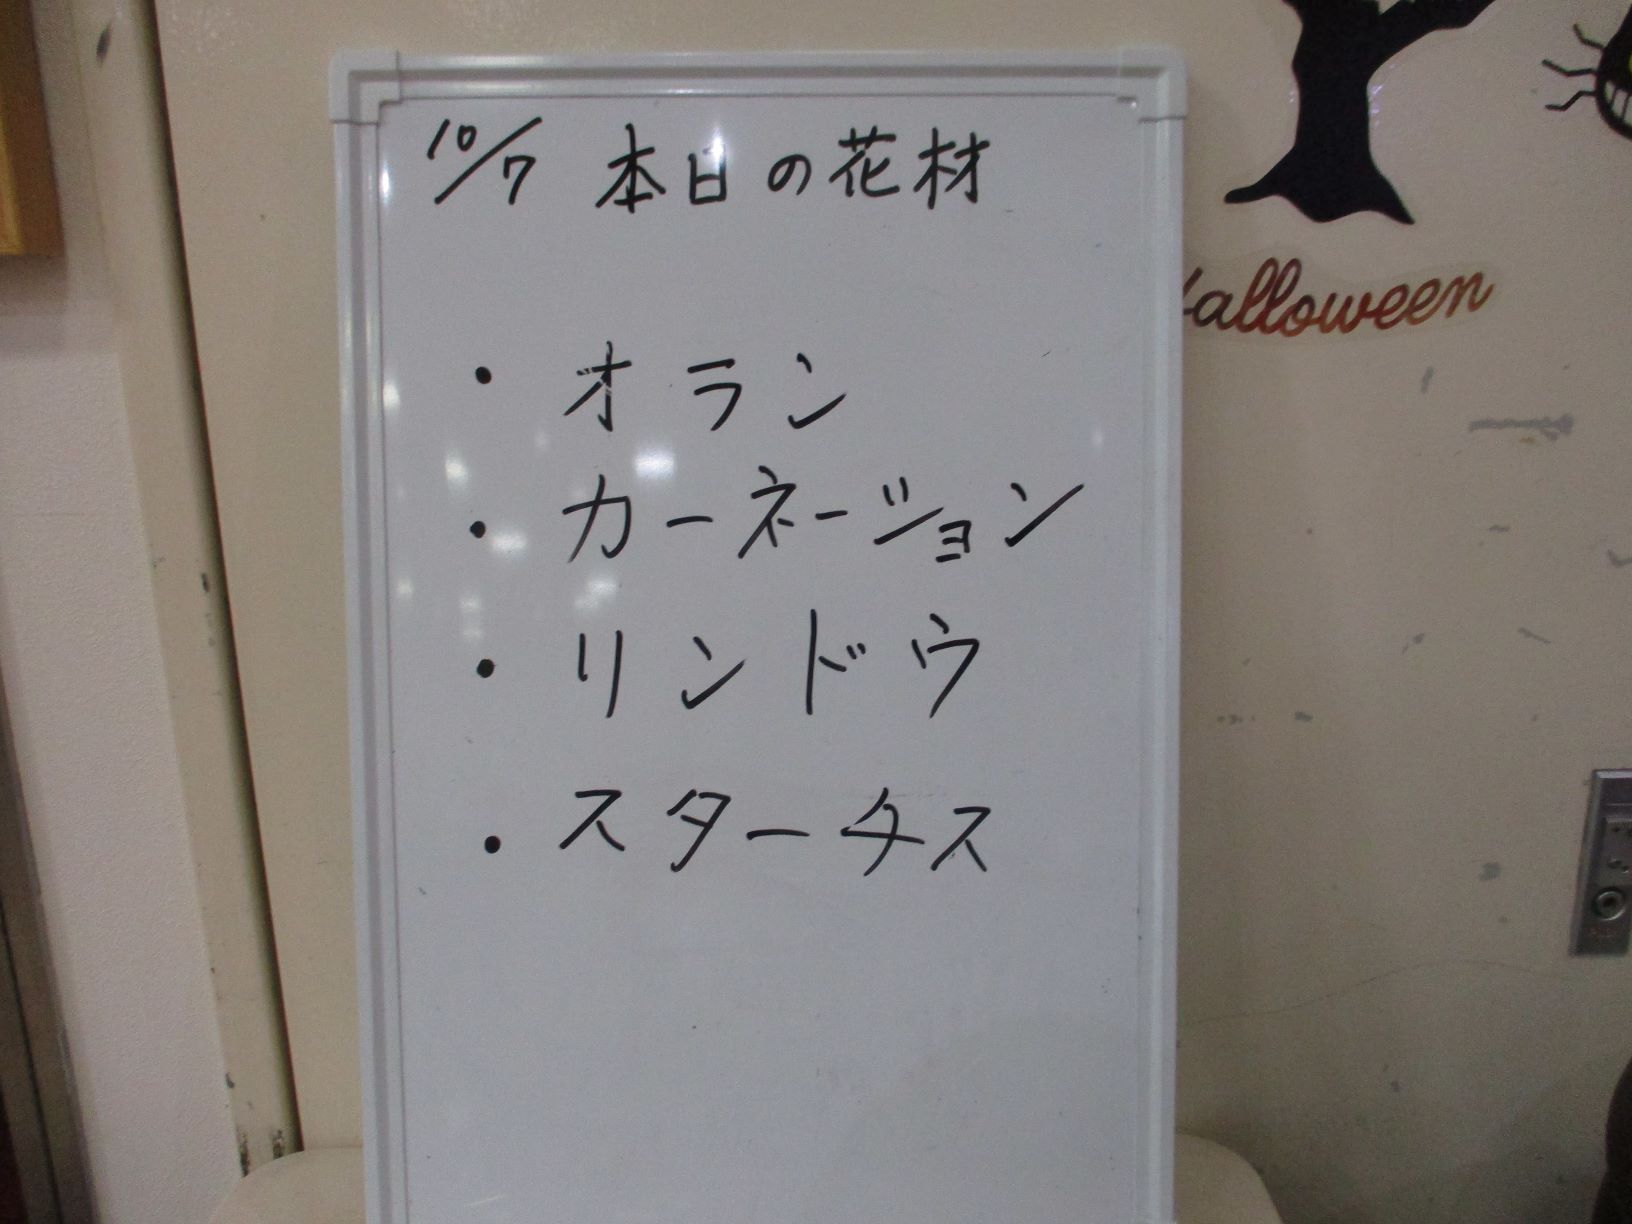 10/7 本日の花材
・オラン
・カーネーション
・リンドウ
・スターチス
Halloween